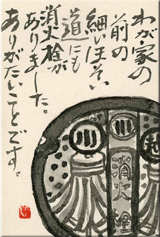 わが家の
前の
細いほそい
道にも
消火栓が
ありました。
ありがたいことです。
消火栓